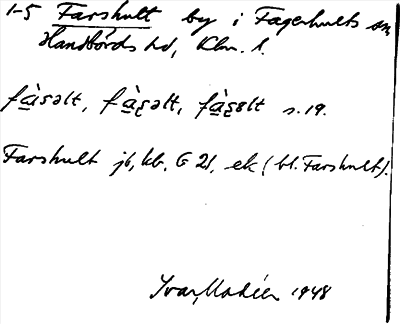 1-5 Farshult by i Fagerhults sn
Handbörds hd, Klm. l.
fàsəlt, fàʂəlt, fàʂɐlt s. 19.
Farshult jb, kb, G 21, ek (bl. Farshult).
Ivar Modéer 1948